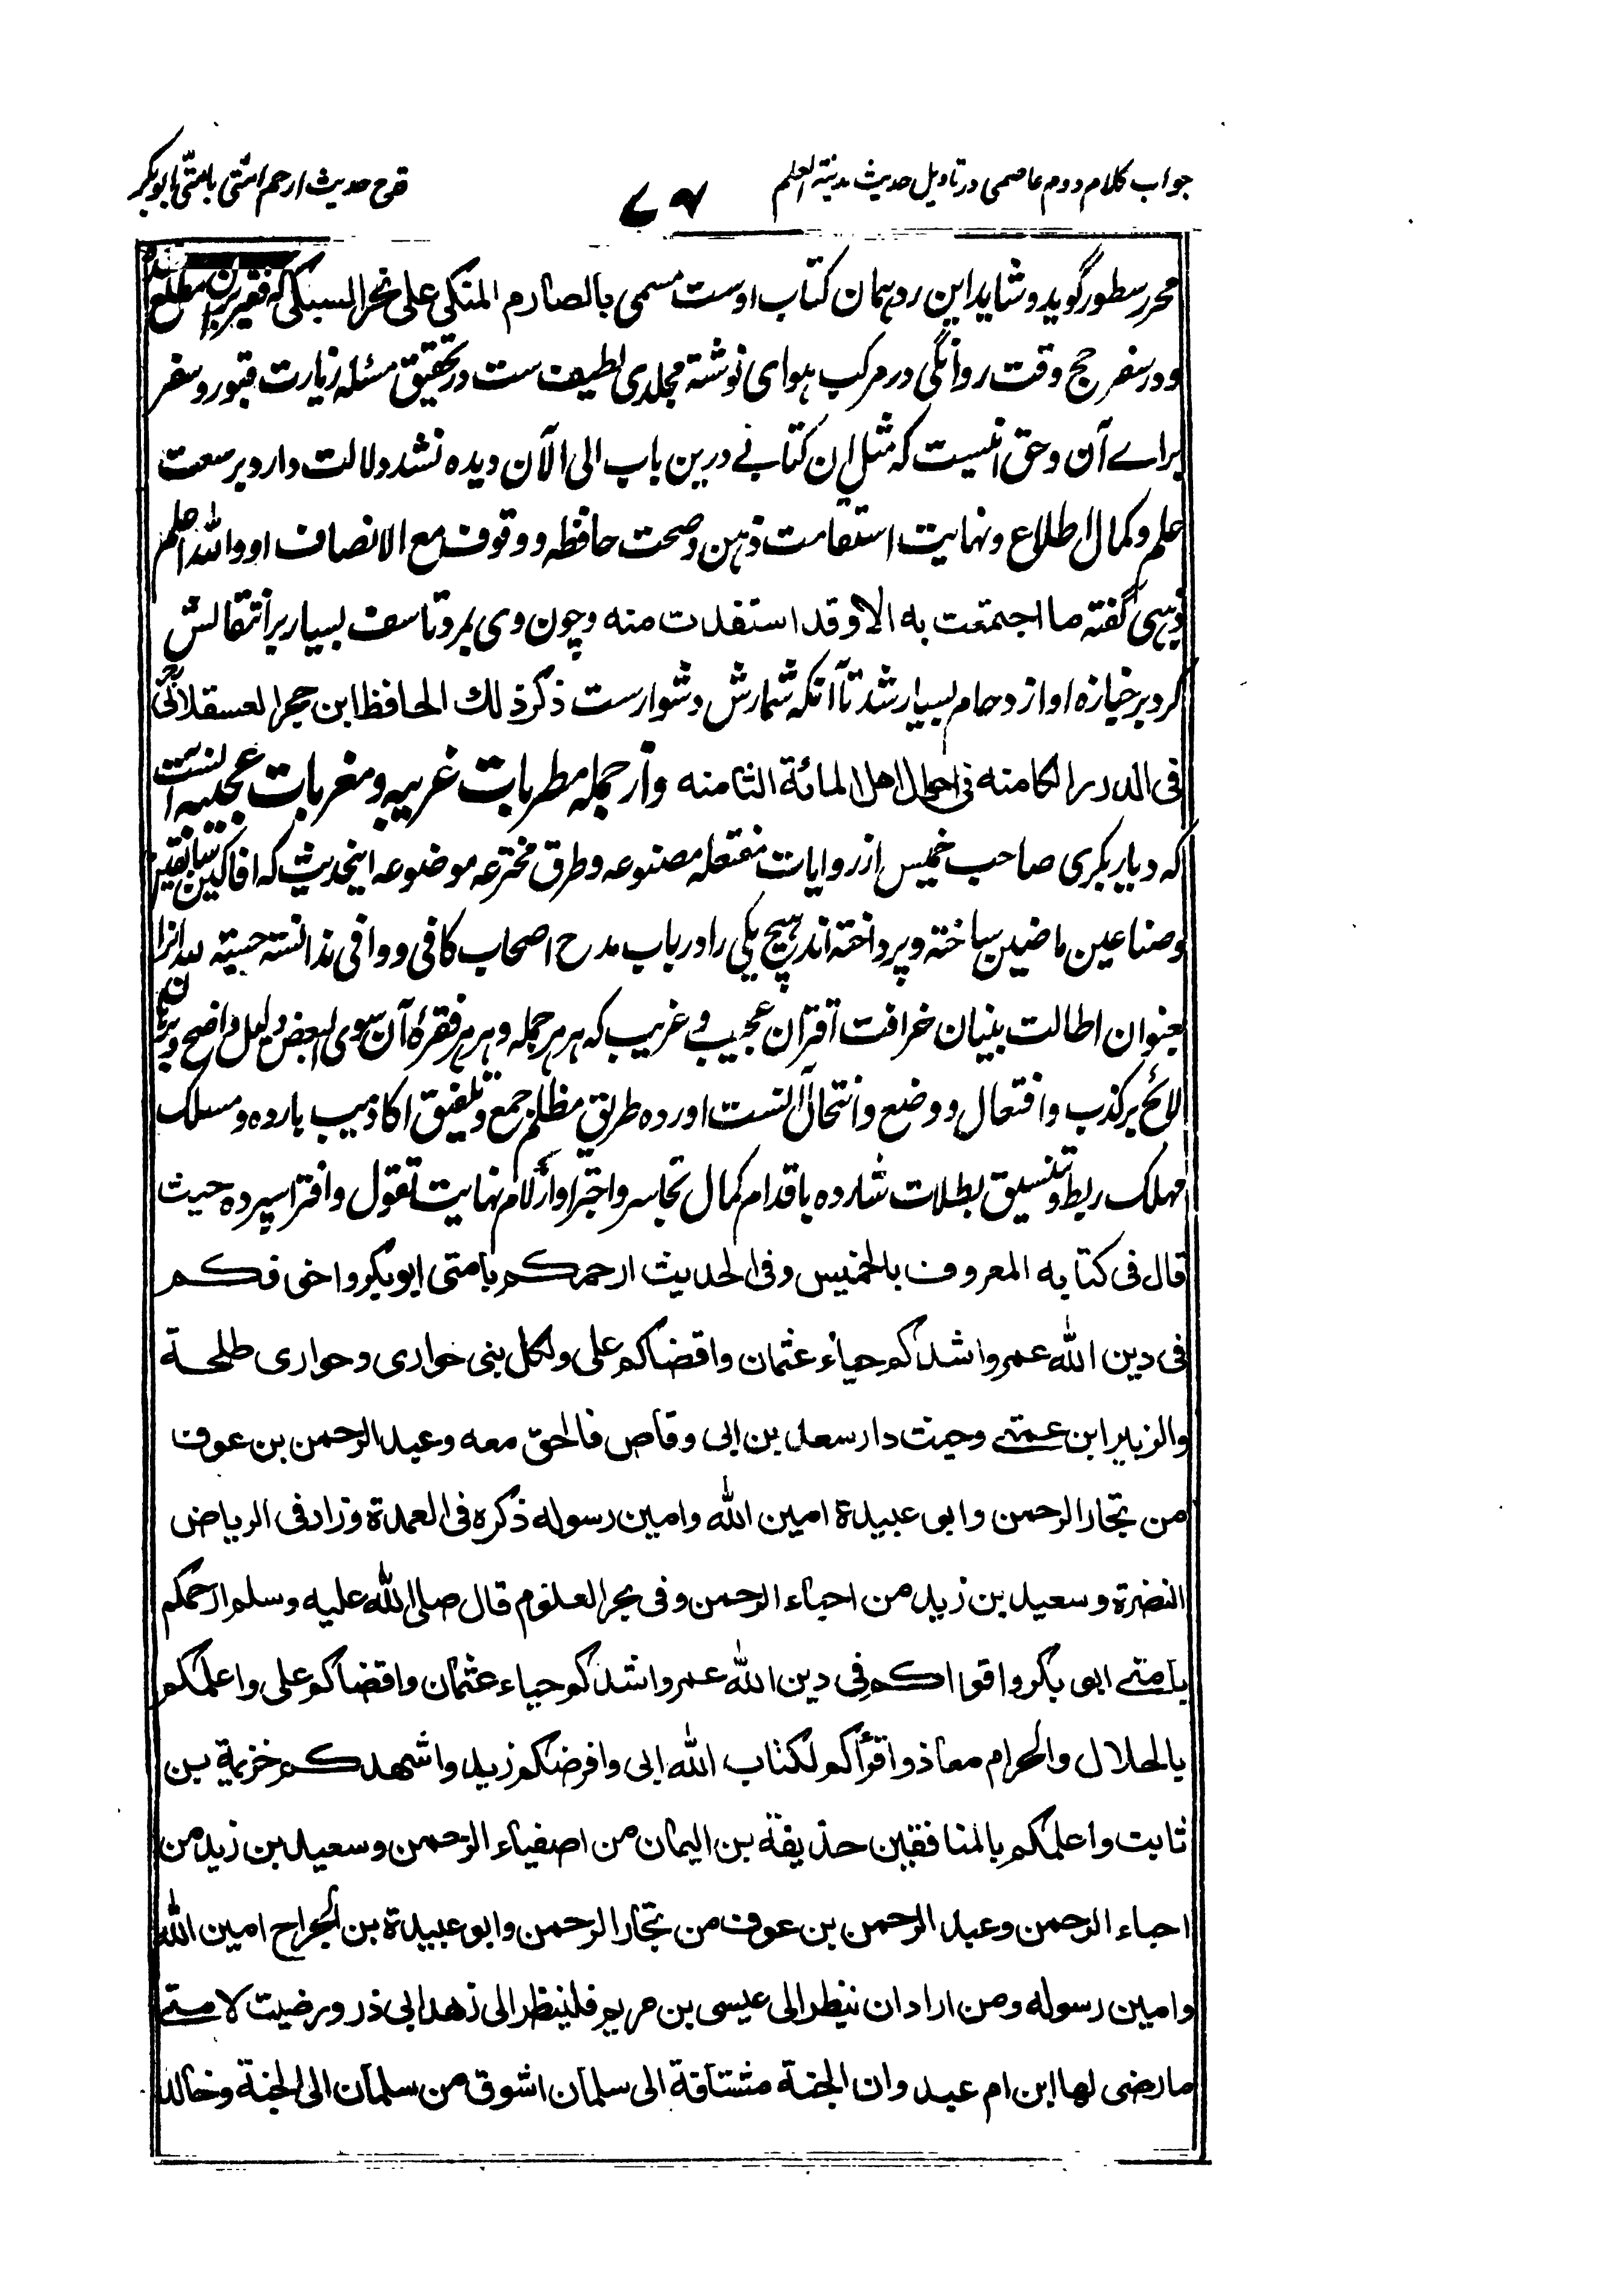 جواب کلام دوم عاصمی در تاویل حدیث مدینة العلم
قدح حدیث ارحم امتی بامتی ابوبکر
محرر سطور گوید و شاید این رد همان کتاب اوست مسمی بالصارم المنکی علی نحر السبکی که فقیر بران مطلع شده
و در سفر حج وقت روانگی در مرکب هوای نوشته مجلدی لطیف ست در تحقیق مسئله زیارت قبور و سفر
براے آن و حق آنست که مثل این کتابے درین باب الی الآن دیده نشد دلالت دارد بر سعت
علم و کمال اطلاع و نهایت استقامت ذهن و صحت حافظه و وقوف مع الانصاف او والله اعلم
ذهبی گفته ما اجتمعت به الا وقد استفدت منه و چون وی بمرد تاسف بسیار بر انتقالش
کرد بر جنازه او ازدحام بسیار شد تا آنکه شمارش دشوارست ذکر ذلك الحافظ ابن حجر العسقلانی
فی الدرر الکامنه فی احوال اهل المائة الثامنه و از جمله مطربات غریبه و مغربات عجیبه آنست
که دیار بکری صاحب خمیس از روایات مفتعله مصنوعه و طرق مخترعه موضوعه اینحدیث که افاکین سابقین
و صناعین ماضین ساخته و پرداخته اند هیچ یکی را در باب مدح اصحاب کافی و وافی ندانسته
بعنوان اطالت بنیان خرافت اقتران عجیب و غریب که هر هر جمله و هر هر فقرهٔ آن سوی البعض دلیل واضح و برهان
لائح بر کذب و افتعال و وضع و انتحال آنست اورده طریق مظلم جمع و تلفیق اکاذیب بارده و مسلک
مهلک ربط و تنسیق بطلات شارده باقدام کمال تجاسر و اجترا و ازلام نهایت تقول و افترا سپرده حیث
قال فی کتابه المعروف بالخمیس وفی الحدیث ارحمکم بامتی ابوبکر واخی فکم
فی دین الله عمر واشدکم حیاء عثمان واقضاکم علی ولکل نبی حواری وحواری طلحة
والزبیر ابن عمتے وحیث دار سعد بن ابی وقاص فالحق معه وعبد الرحمن بن عوف
من تجار الرحمن وابی عبیدة امین الله وامین رسوله ذکره فی العمدة وزاد فی الریاض
النضرة وسعید بن زید من احباء الرحمن وفی بحر العلوم قال صلی الله علیه وسلم ارحمکم
بامتے ابو بکر واقواکم فی دین الله عمر واشدکم حیاء عثمان واقضاکم علی واعلمکم
بالحلال والحرام معاذ واقرأکم لکتاب الله ابی وافرضکم زید واشهدکم خزیمة بن
ثابت واعلمکم بالمنافقین حذیفة بن الیمان من اصفیاء الرحمن وسعید بن زید من
احباء الرحمن وعبد الرحمن بن عوف من تجار الرحمن وابو عبیدة بن الجراح امین الله
وامین رسوله ومن اراد ان ینظر الی عیسی بن مریم فلینظر الی زهد ابی ذر ورضیت لامتے
ما رضی لها ابن ام عبد وان الجنة مشتاقة الی سلمان اشوق من سلمان الی الجنة وخالد